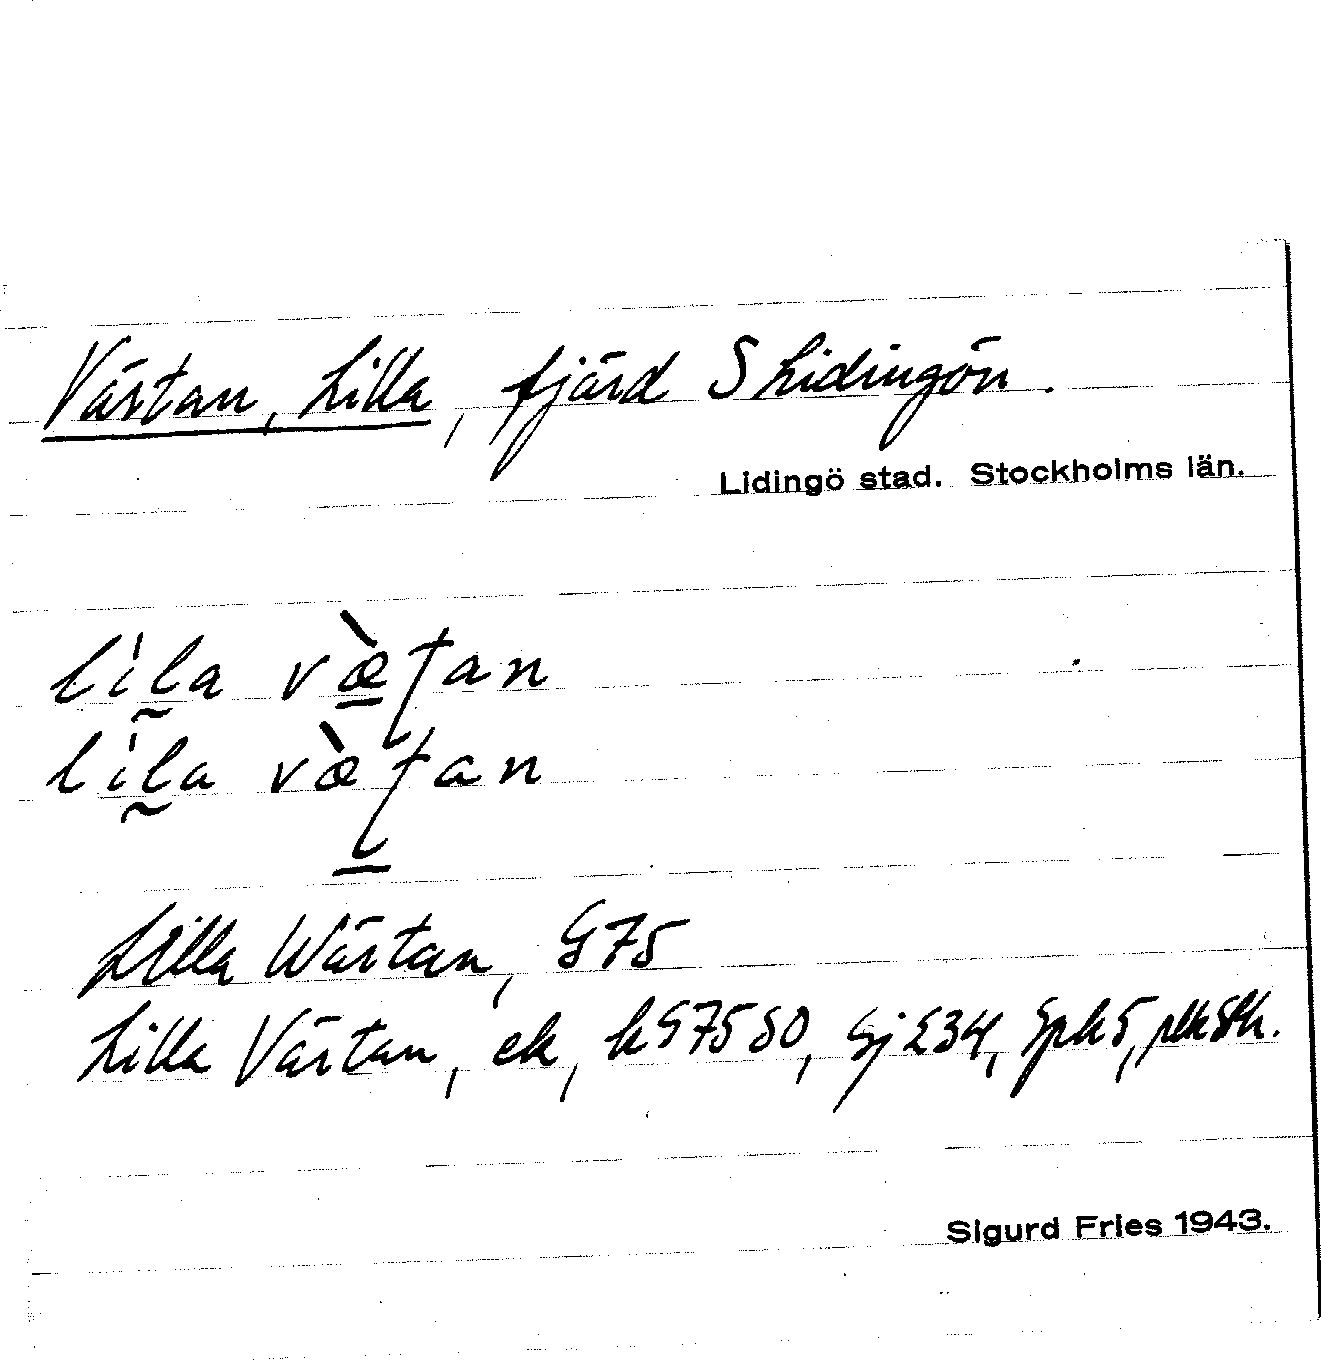 Värtan, Lilla, fjärd S Lidingön.
Lidingö stad. Stockholms län.
lìla væ̀ʈan
lìla væ̀ʈan
Lilla Wärtan, G75
Lilla Värtan, ek, kG75 50, Sj 234, Spk 5, plk Sth.
Sigurd Fries 1943.